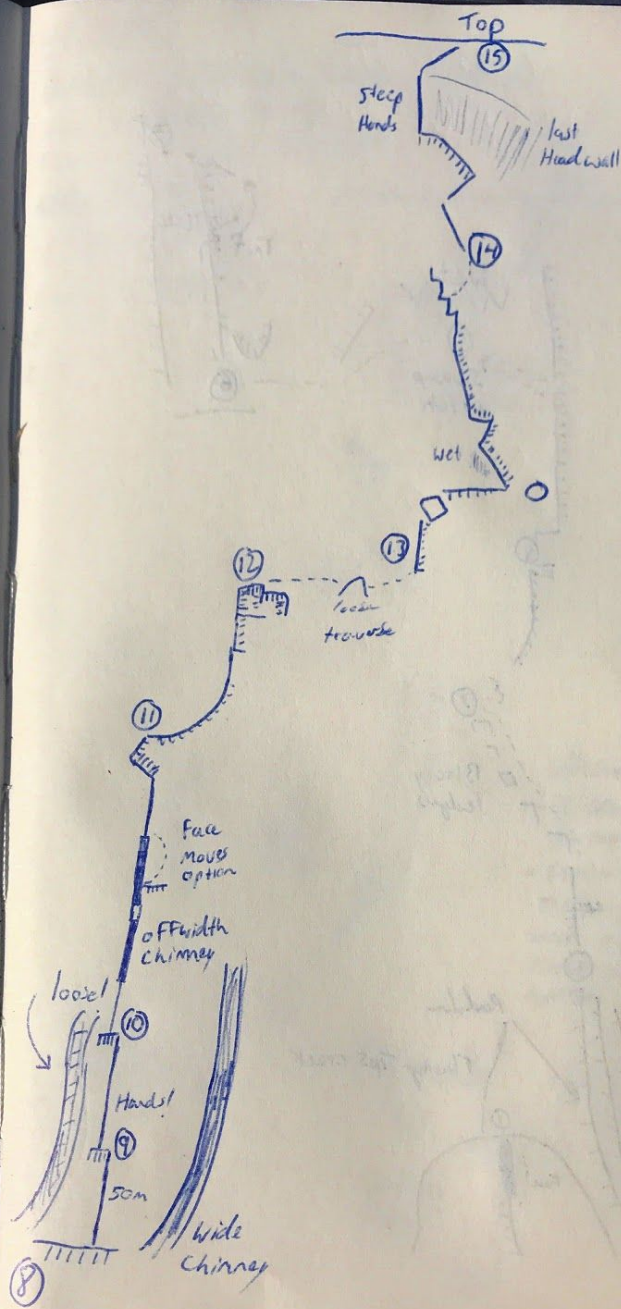 Top
15
Steep
Hands
last
Headwall
14
wet
13
12
loose
traverse
11
Face
Moves
option
offwidth
Chimney
loose!
10
Hands!
9
50m
wide
Chimney
8